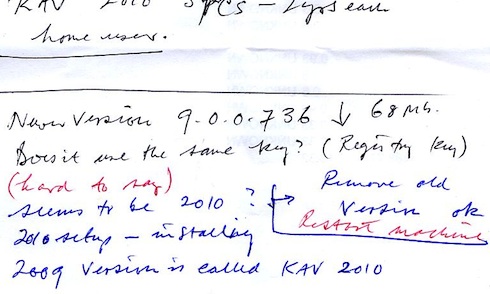 KAV 2010 3 PCs - 2 yrs each
home user.
Newer Version 9.0.0.736 ↓ 68Mb.
Does it use the same key? (Registry key)
(hard to say)
seems to be 2010 ?
Remove old
Version ok
Restart machine
2010 setup - installing
2009 Version is called KAV 2010